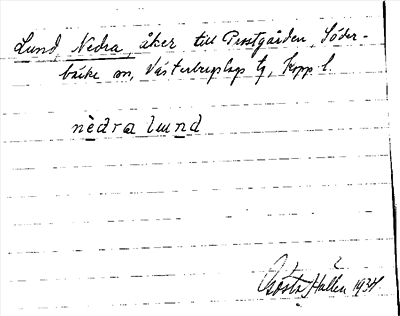 Lund, Nedra, åker till Prostgården, Söder-
bärke sn, Västerbergslags tg, Kopp. l.
nèdra lund
Gösta Hallén 1934